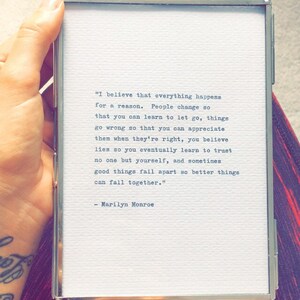 "I believe that everything happens
for a reason. People change so
that you can learn to let go, things
go wrong so that you can appreciate
them when they're right, you believe
lies so you eventually learn to trust
no one but yourself, and sometimes
good things fall apart so better things
can fall together."
- Marilyn Monroe